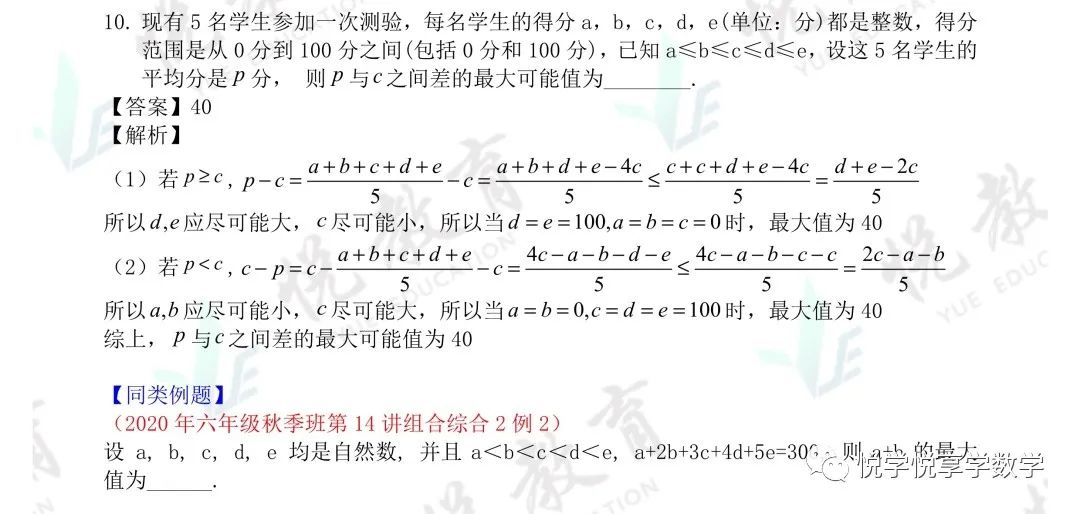 10. 现有 5 名学生参加一次测验，每名学生的得分 a，b，c，d，e(单位：分)都是整数，得分
范围是从 0 分到 100 分之间(包括 0 分和 100 分)，已知 a≤b≤c≤d≤e，设这 5 名学生的
平均分是 p 分， 则 p 与 c 之间差的最大可能值为________.
【答案】40
【解析】
（1）若 p≥c, p−c=\frac{a+b+c+d+e}{5}−c=\frac{a+b+d+e−4c}{5}≤\frac{c+c+d+e−4c}{5}=\frac{d+e−2c}{5}
所以 d,e 应尽可能大， c 尽可能小，所以当 d=e=100,a=b=c=0 时，最大值为 40
（2）若 p<c, c−p=c−\frac{a+b+c+d+e}{5}−c=\frac{4c−a−b−d−e}{5}≤\frac{4c−a−b−c−c}{5}=\frac{2c−a−b}{5}
所以 a,b 应尽可能小， c 尽可能大，所以当 a=b=0,c=d=e=100 时，最大值为 40
综上， p 与 c 之间差的最大可能值为 40
【同类例题】
（2020 年六年级秋季班第 14 讲组合综合 2 例 2）
设 a, b, c, d, e 均是自然数, 并且 a＜b＜c＜d＜e, a+2b+3c+4d+5e=300, 则 a+b 的最大
值为______.
悦学悦享学数学
悦教育
YUE EDUCATION